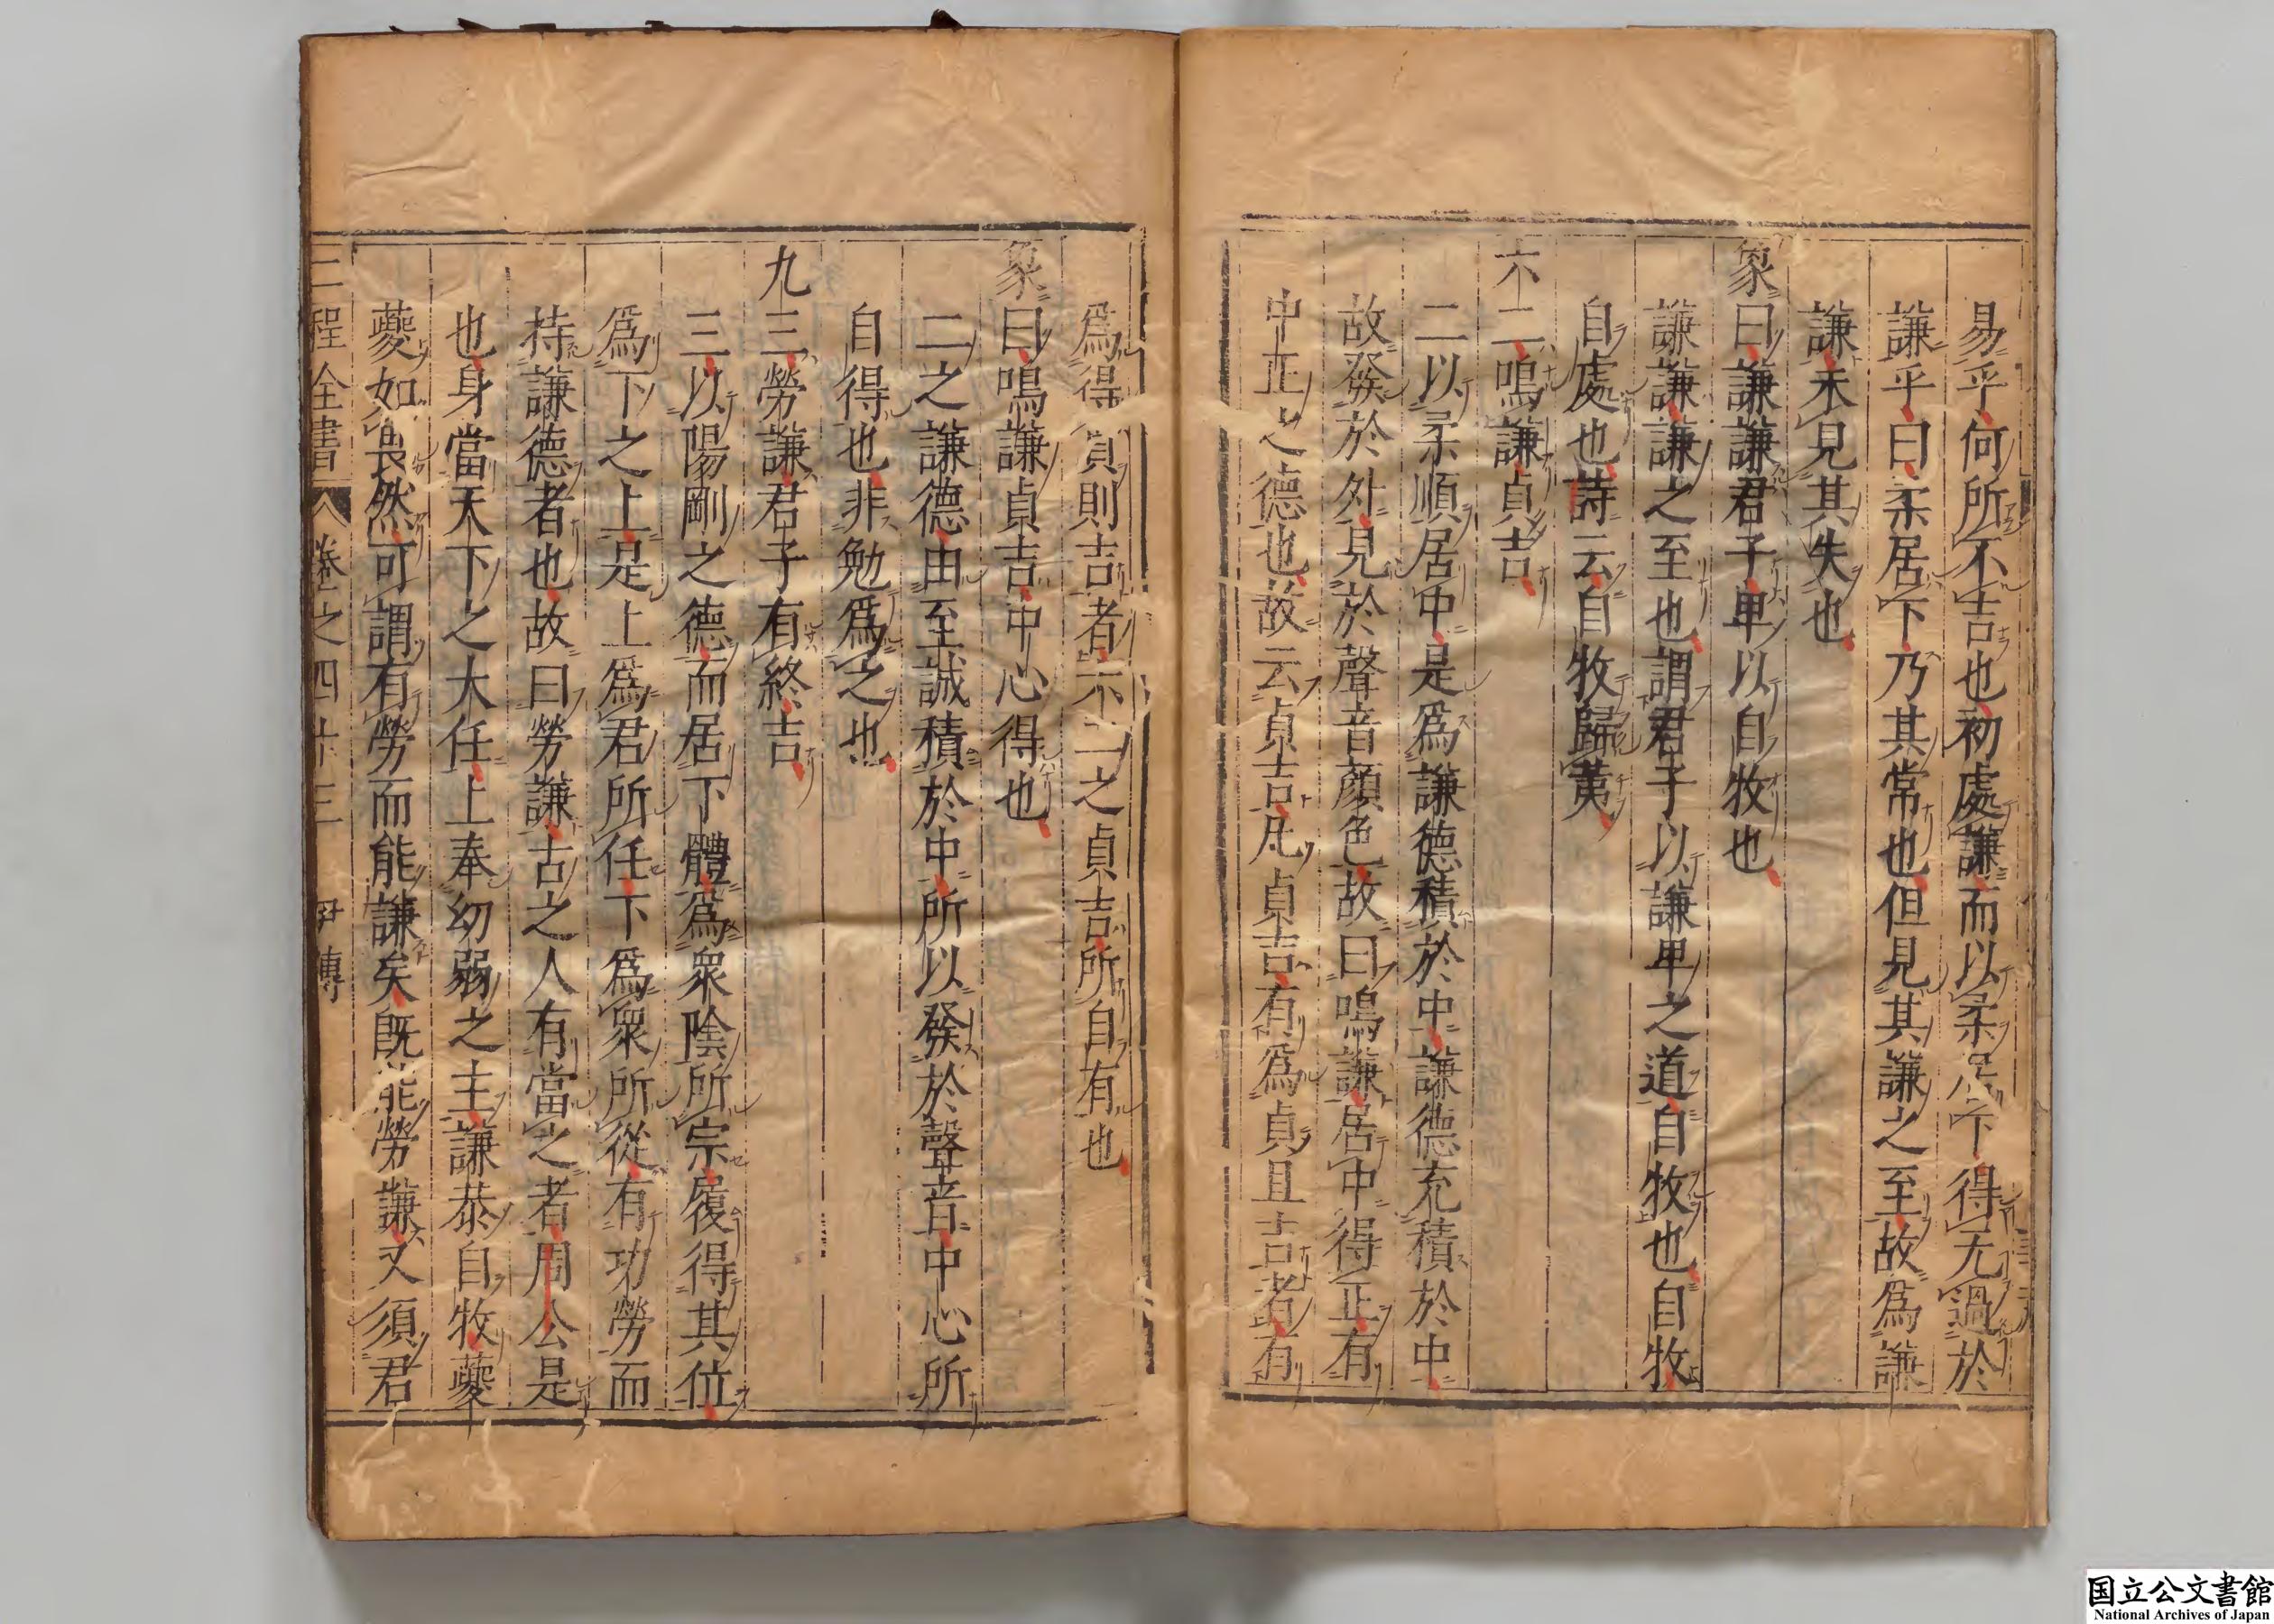 易乎何所不吉也初處謙而以柔居下得无過於
謙乎曰柔居下乃其常也但見其謙之至故爲謙
謙未見其失也
象曰謙謙君子卑以自牧也
謙謙謙之至也謂君子以謙卑之道自牧也自牧
自處也詩云自牧歸荑
六二鳴謙貞吉
二以柔順居中是爲謙德積於中謙德充積於中
故發於外見於聲音顏色故曰鳴謙居中得正有
中正之德也故云貞吉凡貞吉有爲貞且吉者有
爲得貞則吉者六二之貞吉所自有也
象曰鳴謙貞吉中心得也
二之謙德由至誠積於中所以發於聲音中心所
自得也非勉爲之也
九三勞謙君子有終吉
三以陽剛之德而居下體爲衆陰所宗履得其位
爲下之上是上爲君所任下爲衆所從有功勞而
持謙德者也故曰勞謙古之人有當之者周公是
也身當天下之大任上奉幼弱之主謙恭自牧夔
夔如畏然可謂有勞而能謙矣既能勞謙又須君
二程全書 卷之四十三 伊傳
国立公文書館
National Archives of Japan